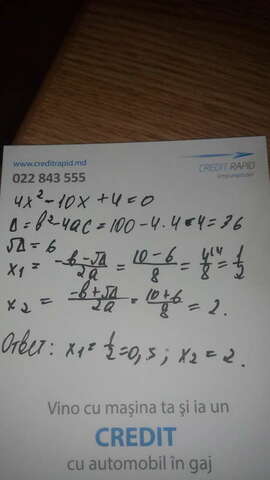 www.creditrapid.md
022 843 555
CREDIT RAPID
4x² - 10x + 4 = 0
D = b² - 4ac = 100 - 4·4·4 = 36
√D = 6
x₁ = (-b - √D)/2a = (10 - 6)/8 = 4/8 = 1/2
x₂ = (-b + √D)/2a = (10 + 6)/8 = 2.
Ответ: x₁ = 1/2 = 0,5; x₂ = 2.
Vino cu mașina ta și ia un
CREDIT
cu automobil în gaj